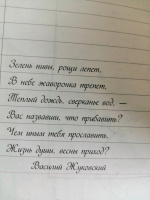 Зелень нивы, рощи лепет,
В небе жаворонка трепет,
Теплый дождь, сверканье вод, —
Вас назвавши, что прибавить?
Чем иным тебя прославить,
Жизнь души, весны приход?
Василий Жуковский